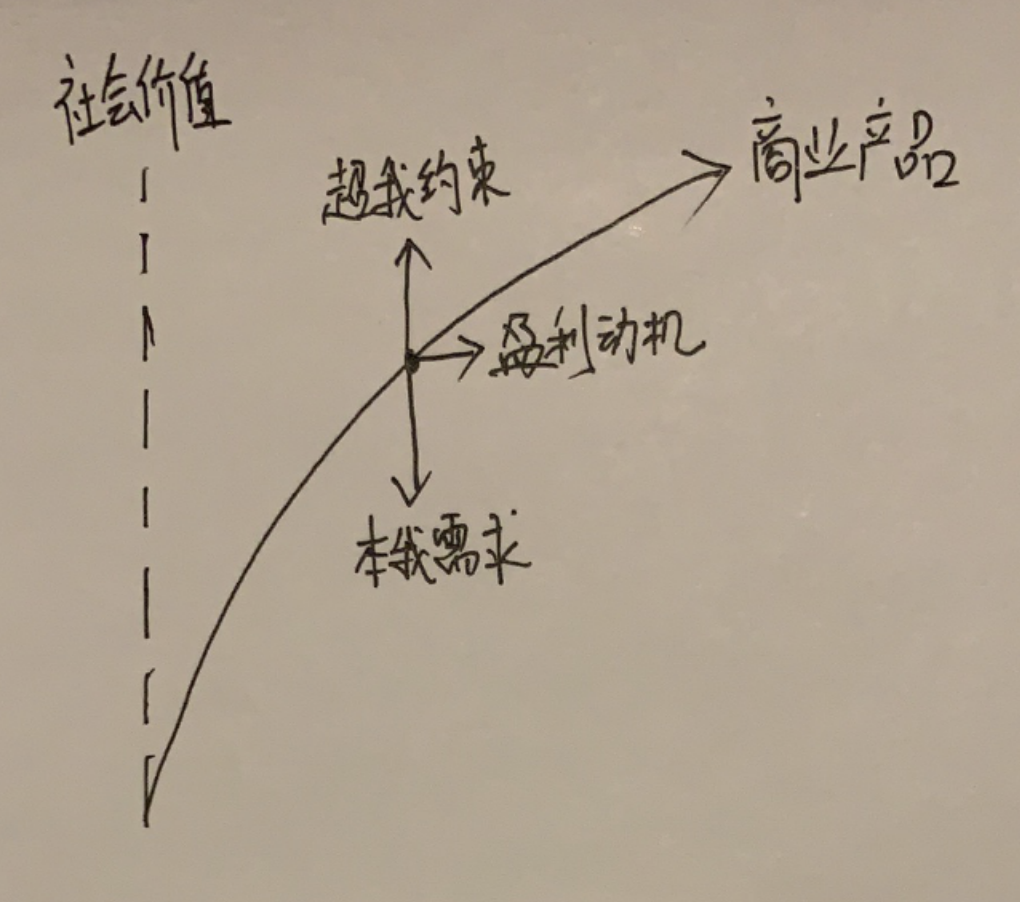 社会价值
商业产品
超我约束
盈利动机
本我需求